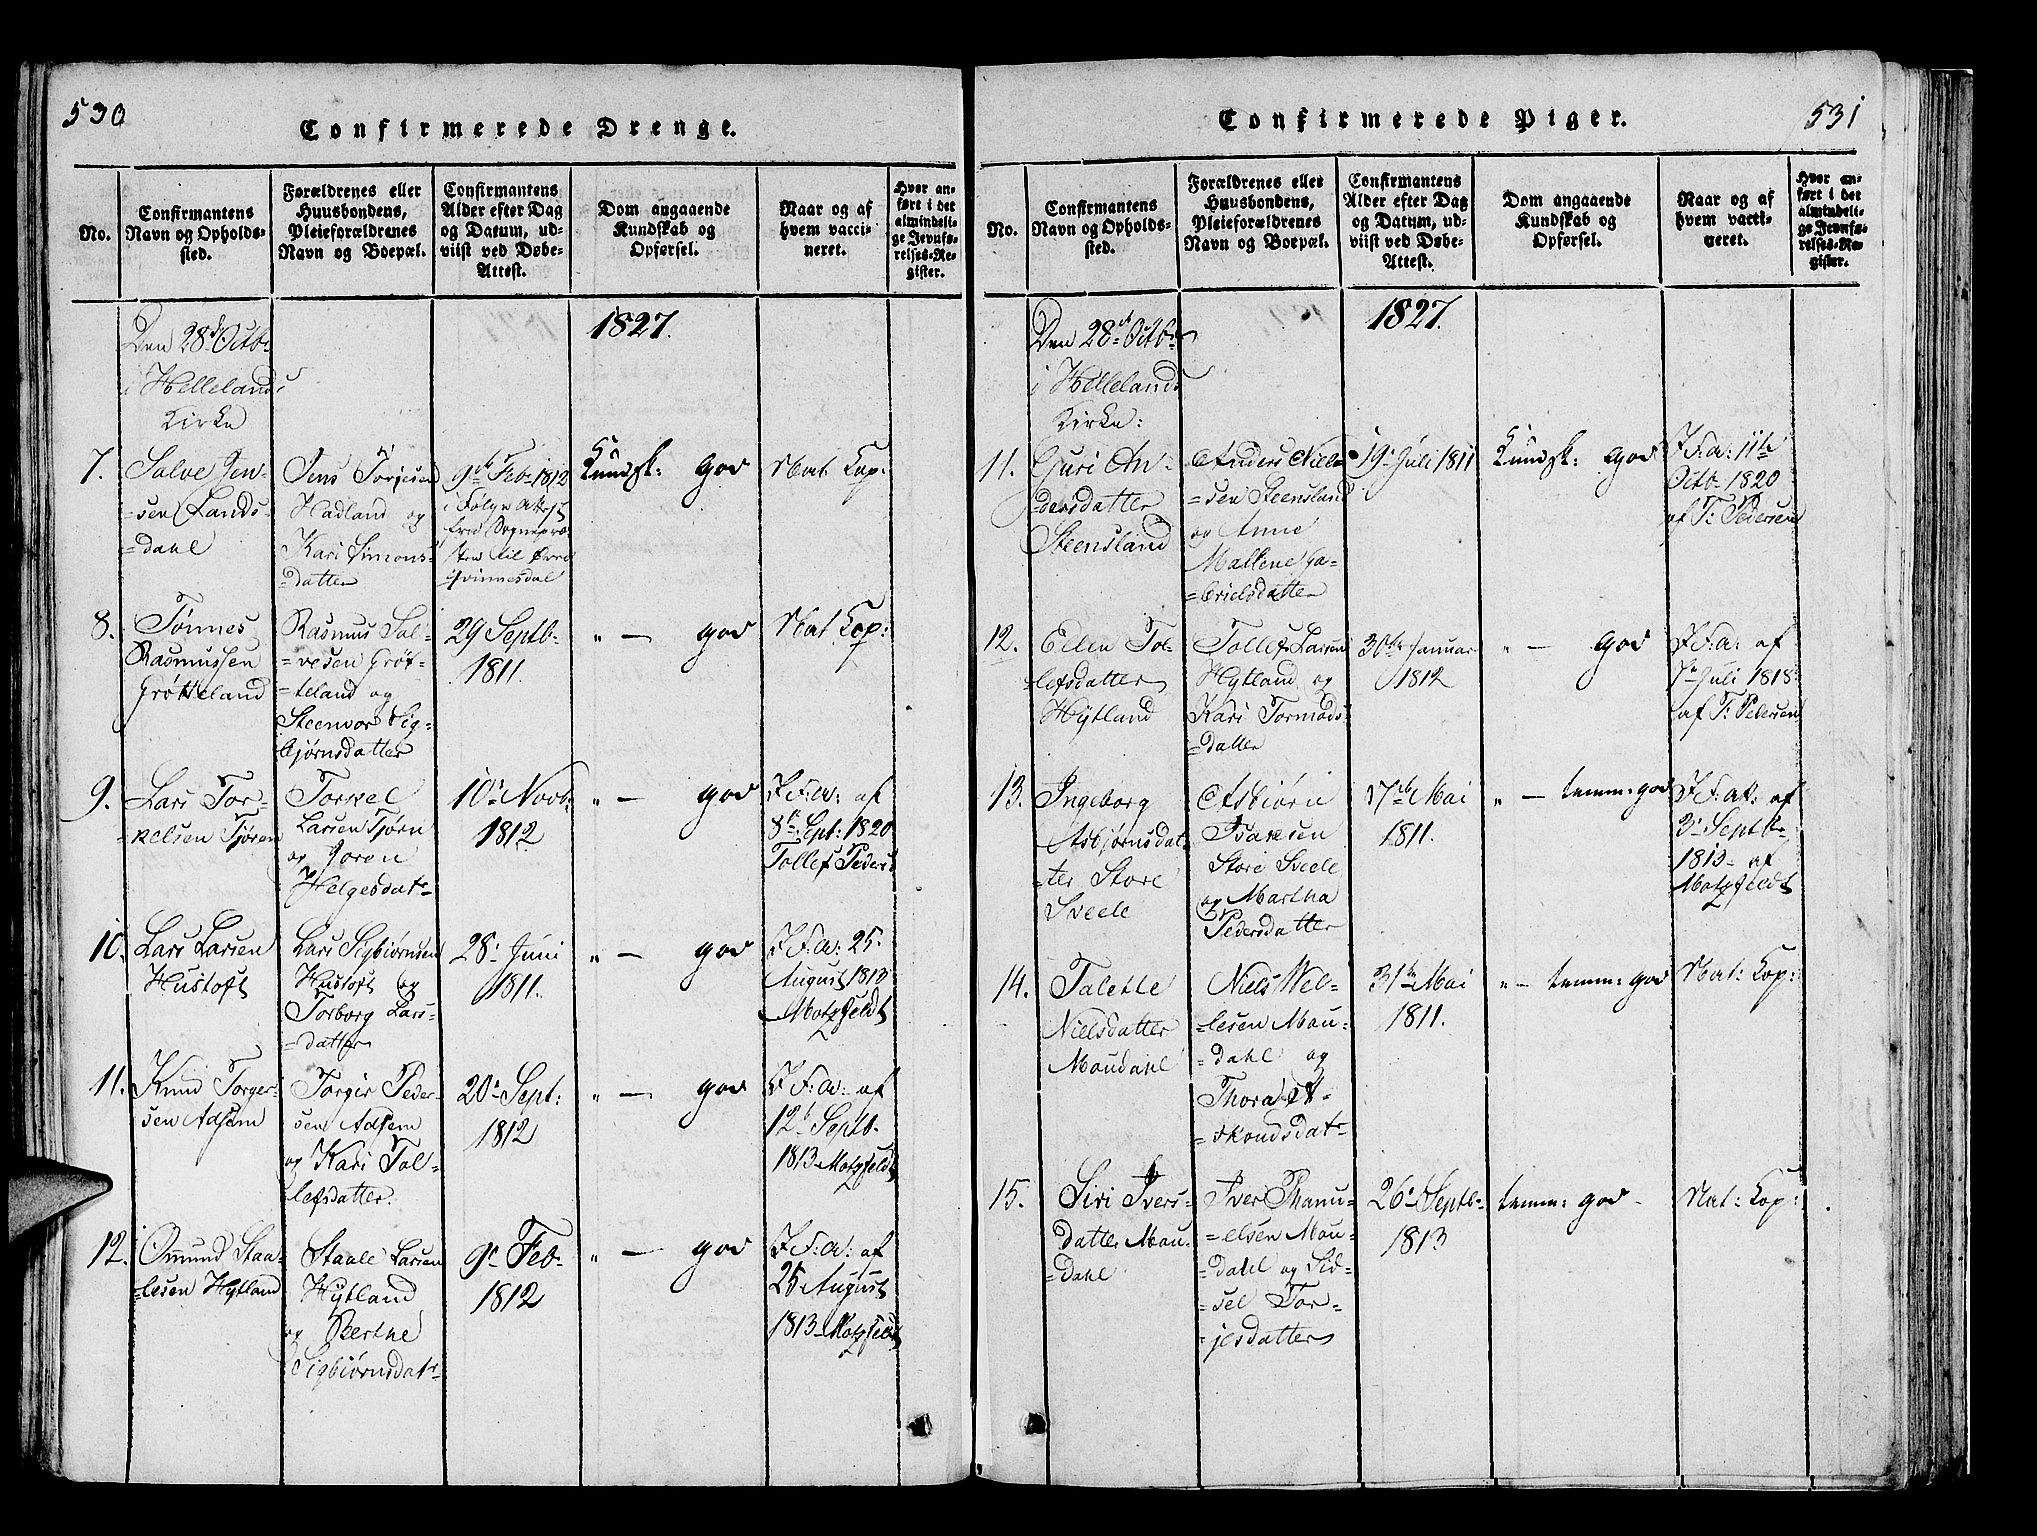 530
Confirmerede Drenge.
No.
Confirmantens
Navn og Opholds-
sted.
Forældrenes eller
Huusbondens,
Pleieforældrenes
Navn og Boepæl.
Confirmantens
Alder efter Dag
og Datum, ud-
viist ved Døbe-
Attest.
Dom angaaende
Kundskab og
Opførsel.
Naar og af
hvem vacci-
neret.
Hvor an-
ført i det
almindeli-
ge Jevnfø-
relses-Re-
gister.
1827.
Den 28d Octb.
i Hellelands
Kirke
7.
Salve Jen-
-sen Lands-
-dahl
Jens Torjesen
Hadland og
Kari Simons-
-datter
9de Feb. 1812
i Følge Attest
fra Sognepræ-
sten til Øvre
Qvinnesdal
Kundsk: god
Nat. Kop:
8.
Tønnes
Rasmussen
Grøtteland
Rasmus Sal-
-vesen Grøt-
-teland og
Steenvor Sig-
bjørnsdatter
29 Septb.
1811.
" — god
Nat Kop:
9.
Lars Tor-
-kelsen Tjøren
Torkel
Larsen Tjørn
og Joren
Helgesdatr
10. Novb.
1812
" — god
J F: a: af
8de Sept: 1820
Tollef Peders
10.
Lars Larsen
Hustoft
Lars Sigbiørnsen
Hustoft og
Torborg Lars-
-datter
28. Juni
1811.
" — god
J F: a: 25.
August 1813
Motzfeldt
11.
Knud Torger-
sen Adsem
Torgir Peder-
sen Adsem
og Kari Tol-
lefsdatter.
20. Sept:
1812
" — god
J F: a: af
12te Septb.
1813 Motzfeldt
12.
Omund Staa-
-lesen Hytland
Staale Larsen
Hytland
og Berthe
Sigbiørnsdatr
9. Feb.
1812
" — god
J F: a: af
25 August
1813 Motzfeldt
531
Confirmerede Piger.
No.
Confirmantens
Navn og Opholds-
sted.
Forældrenes eller
Huusbondens,
Pleieforældrenes
Navn og Boepæl.
Confirmantens
Alder efter Dag
og Datum, ud-
viist ved Døbe-
Attest.
Dom angaaende
Kundskab og
Opførsel.
Naar og af
hvem vacci-
neret.
Hvor an-
ført i det
almindeli-
ge Jevnfø-
relses-Re-
gister.
1827.
Den 28de Octb.
i Hellelands
Kirke:
11.
Guri An-
dersdatter
Steensland
Anders Niel-
-sen Steensland
og Anne
Mallene Ga-
-brielsdatter
19. Juli 1811
Kundsk: god
J F: a: 11te
Octb. 1820
af T: Pedersen
12.
Ellen Tol-
-lefsdatter
Hytland
Tollef Larsen
Hytland og
Kari Tormods-
-datter
30te Januar
1812
" — god
J F: a: af
7de Juli 1818
af T: Pedersen
13.
Ingeborg
Asbjørnsdat-
-ter Store
Sveele
Asbiørn
Isaksen
Store Sveele
og Martha
Pedersdatter
17de Mai
1811.
" — temm: god
J F: at: af
3. Septb.
1813 af
Motzfeldt
14.
Talette
Nielsdatter
Moudahl
Niels Wel-
-lesen Mou-
-dahl og
Thora A-
-skoudsdatr
31te Mai
1811.
" — temm: god
Nat: Kop:
15.
Siri Ivers-
datter Mou-
-dahl
Iver Thanu-
-elsen Mou-
-dahl og Sid-
-sel Tor-
-jesdatter
26. Septb.
1813
temm: god
Nat: Kop: